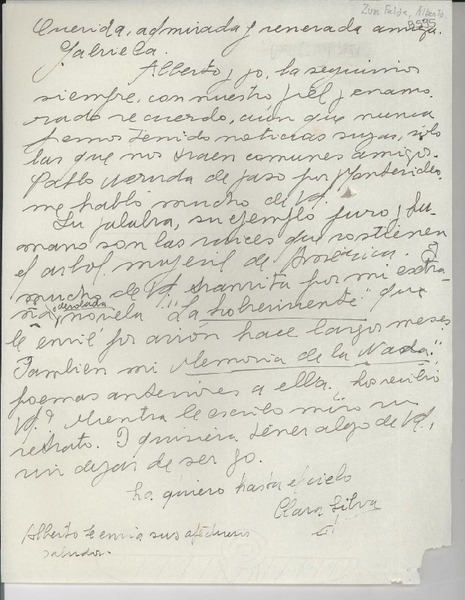 Zum Felde, Alberto
Querida, admirada y venerada amiga
Gabriela.
Alberto y yo, la seguimos
siempre, con nuestro fiel y enamo
rado recuerdo, aún que nunca
hemos tenido noticias suyas, solo
las que nos traen comunes amigos.
Pablo Neruda de paso por Montevideo
me habló mucho de Vd.
Su palabra, su ejemplo puro y hu-
mano son las raices que sostienen
el arbol mujeril de América. Y
mucho de Vd transita por mi extra
ña y desolada novela "La sobreviviente" que
le envié por avión hace largos meses
Tambien mi Memoria de la Nada",
poemas anteriores a ella. Los recibió
Vd? Mientra le escribo miro su
retrato. Y quisiera tener algo de Vd,
sin dejar de ser yo.
La quiero hasta el cielo
Clara Silva
Alberto le envia sus afectuosos
saludos.